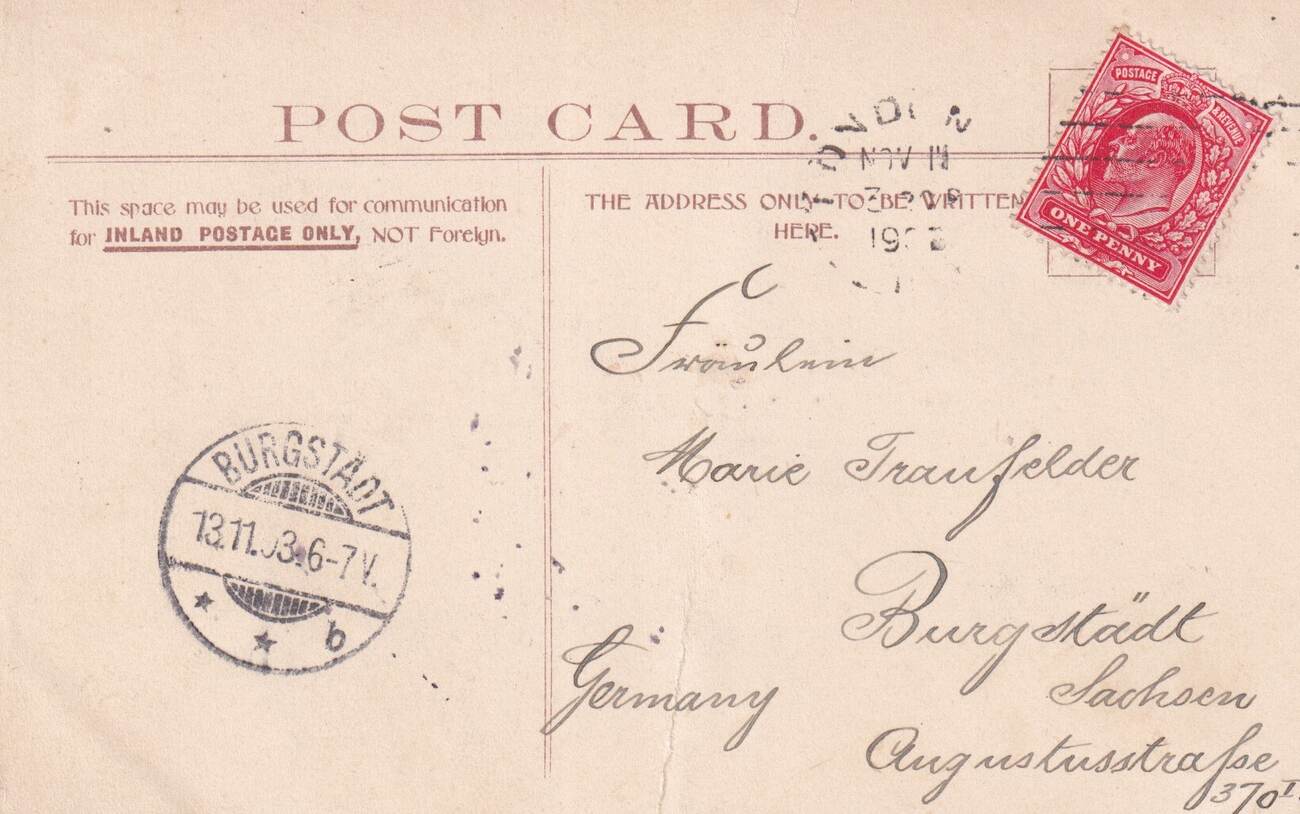 POST CARD.
This space may be used for communication
for INLAND POSTAGE ONLY, NOT Foreign.
THE ADDRESS ONLY TO BE WRITTEN
HERE.
LONDON
NOV 11
POSTAGE
ONE PENNY
Fräulein
Marie Traufelder
Burgstädt
Germany
Sachsen
Augustusstraße
370 I
BURGSTÄDT
13.11.03.6-7V.
b